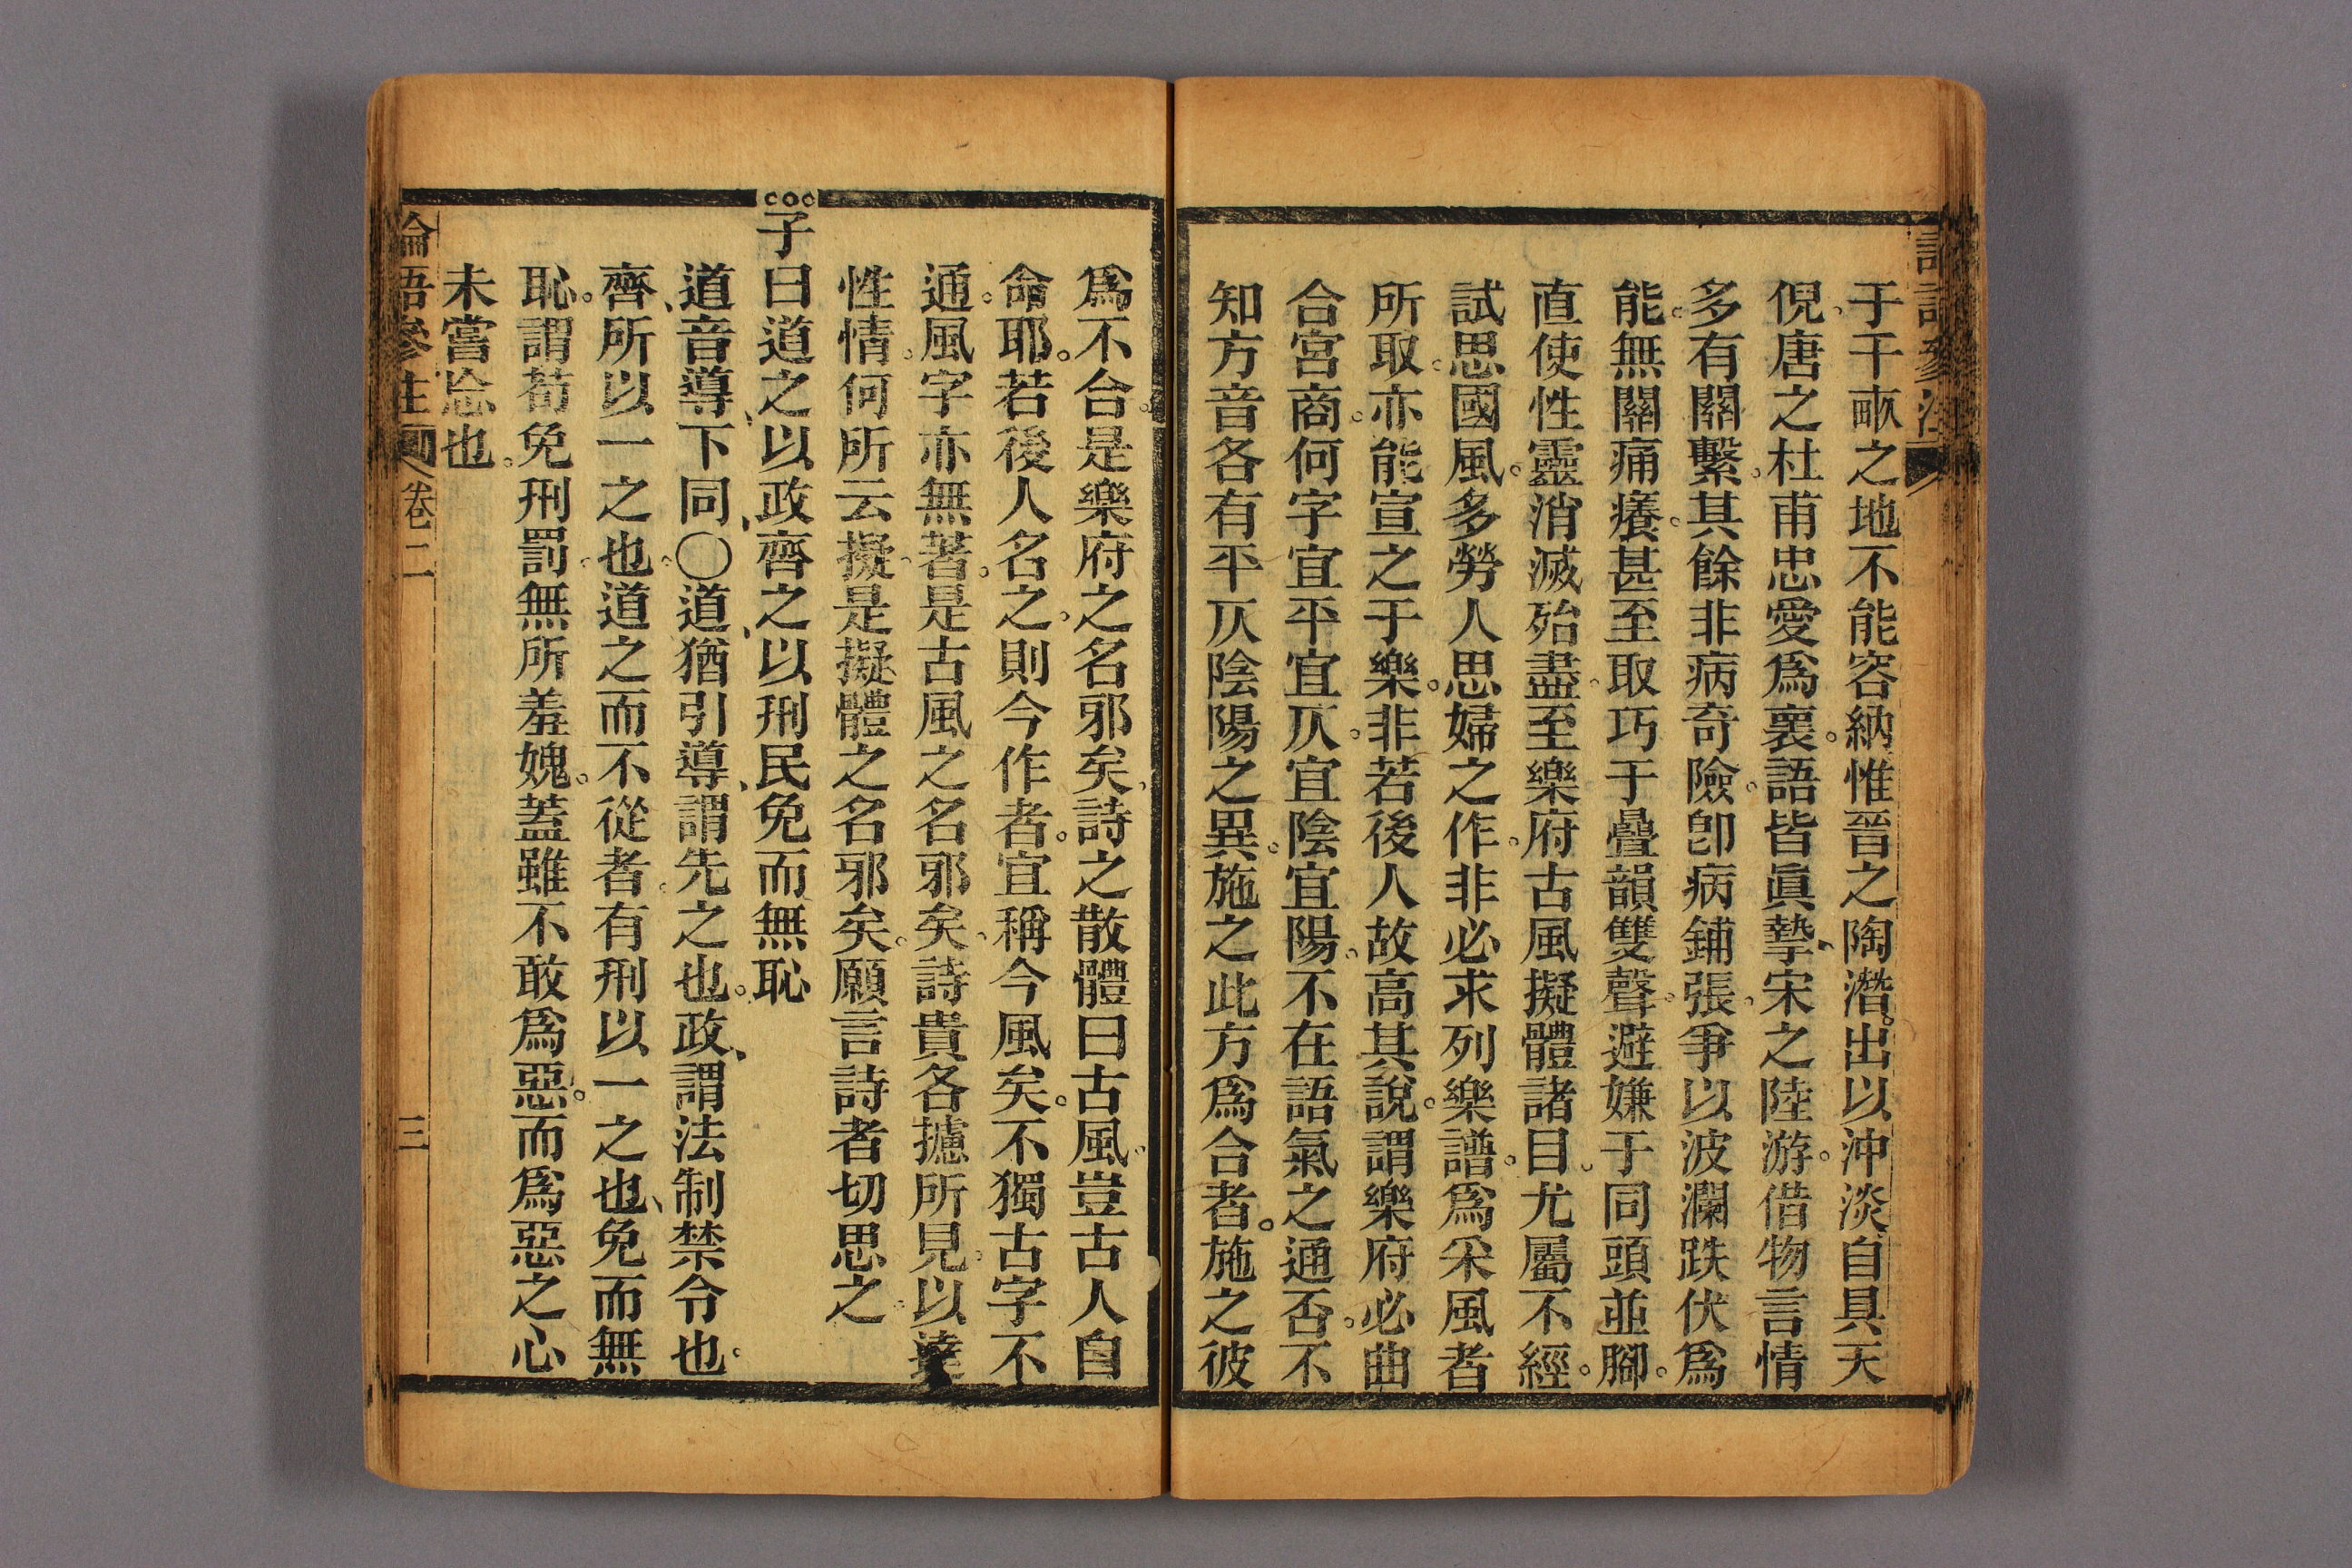 于千畞之地不能容納惟晉之陶潛。出以沖淡、自具天
倪、唐之杜甫忠愛爲裏。語皆眞摯、宋之陸游。借物言情
多有關繫。其餘非病奇險。卽病鋪張、爭以波瀾跌伏爲
能。無關痛癢。甚至取巧于疊韻雙聲。避嫌于同頭並腳。
直使性靈消滅殆盡。至樂府古風擬體諸目、尤屬不經。
試思國風。多勞人思婦之作。非必求列樂譜。爲采風者
所取。亦能宣之于樂。非若後人故高其說。謂樂府必曲
合宮商。何字宜平宜仄。宜陰宜陽。不在語氣之通否。不
知方音各有平仄陰陽之異。施之此方爲合者。施之彼
爲不合。是樂府之名邪矣、詩之散體曰古風。豈古人自
命耶。若後人名之、則今作者。宜稱今風矣。不獨古字不
通。風字亦無著。是古風之名邪矣、詩貴各攄所見。以達
性情。何所云擬。是擬體之名邪矣。願言詩者切思之。
子曰道之以政齊之以刑民免而無恥
道音導、下同、〇道、猶引導、謂先之也。政、謂法制禁令也。
齊、所以一之也。道之而不從者。有刑以一之也、免而無
恥。謂苟免刑罰。無所羞媿。蓋雖不敢爲惡。而爲惡之心
未嘗忘也。
論語參注
卷二
三